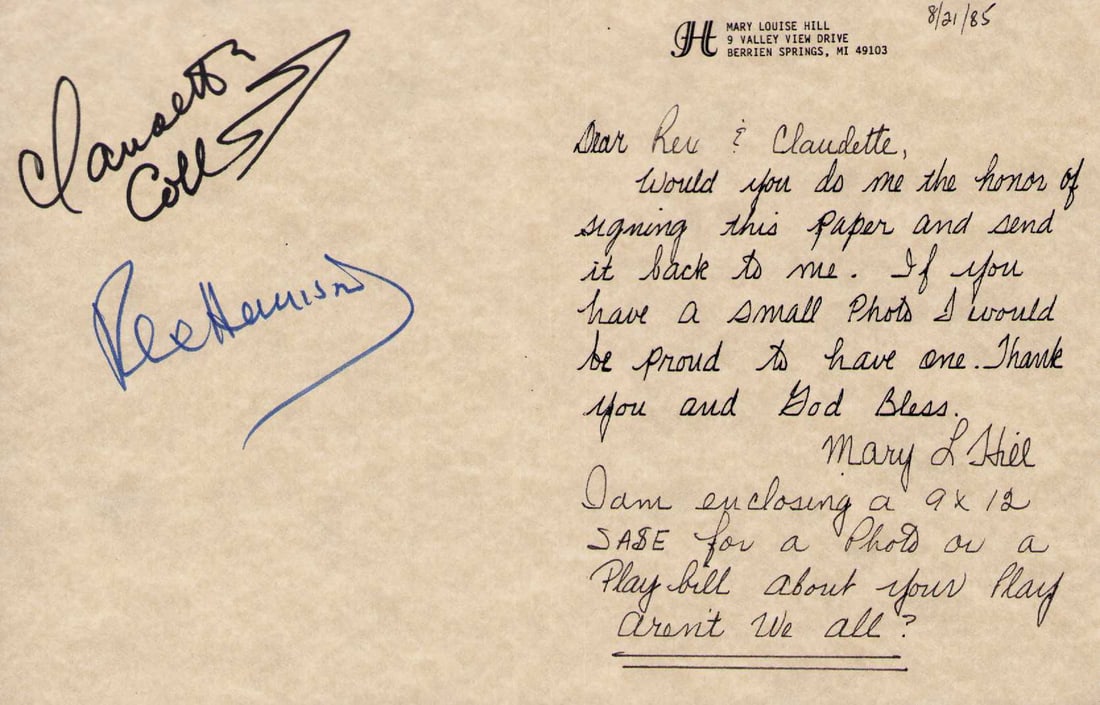 Claudette
Colbert
Rex Harrison
8/21/85
H
MARY LOUISE HILL
9 VALLEY VIEW DRIVE
BERRIEN SPRINGS, MI 49103
Dear Rex & Claudette,
Would you do me the honor of
signing this paper and send
it back to me. If you
have a small Photo I would
be proud to have one. Thank
you and God Bless.
Mary L Hill
I am enclosing a 9 x 12
SASE for a Photo or a
Play bill about your Play
Aren't We all?